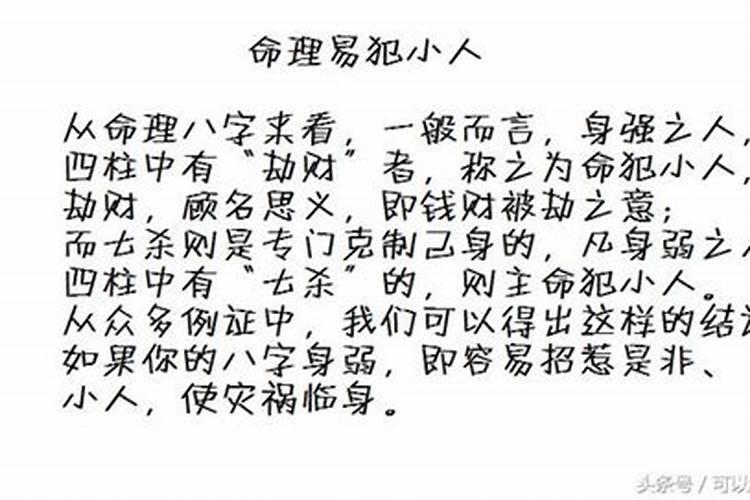 命理易犯小人
从命理八字来看，一般而言，身强之人，
四柱中有“劫财”者，称之为命犯小人，
劫财，顾名思义，即钱财被劫之意；
而七杀则是专门克制己身的，凡身弱之人
四柱中有“七杀”的，则主命犯小人。
从众多例证中，我们可以得出这样的结
如果你的八字身弱，即容易招惹是非、
小人，使灾祸临身。
头条号 / 可以